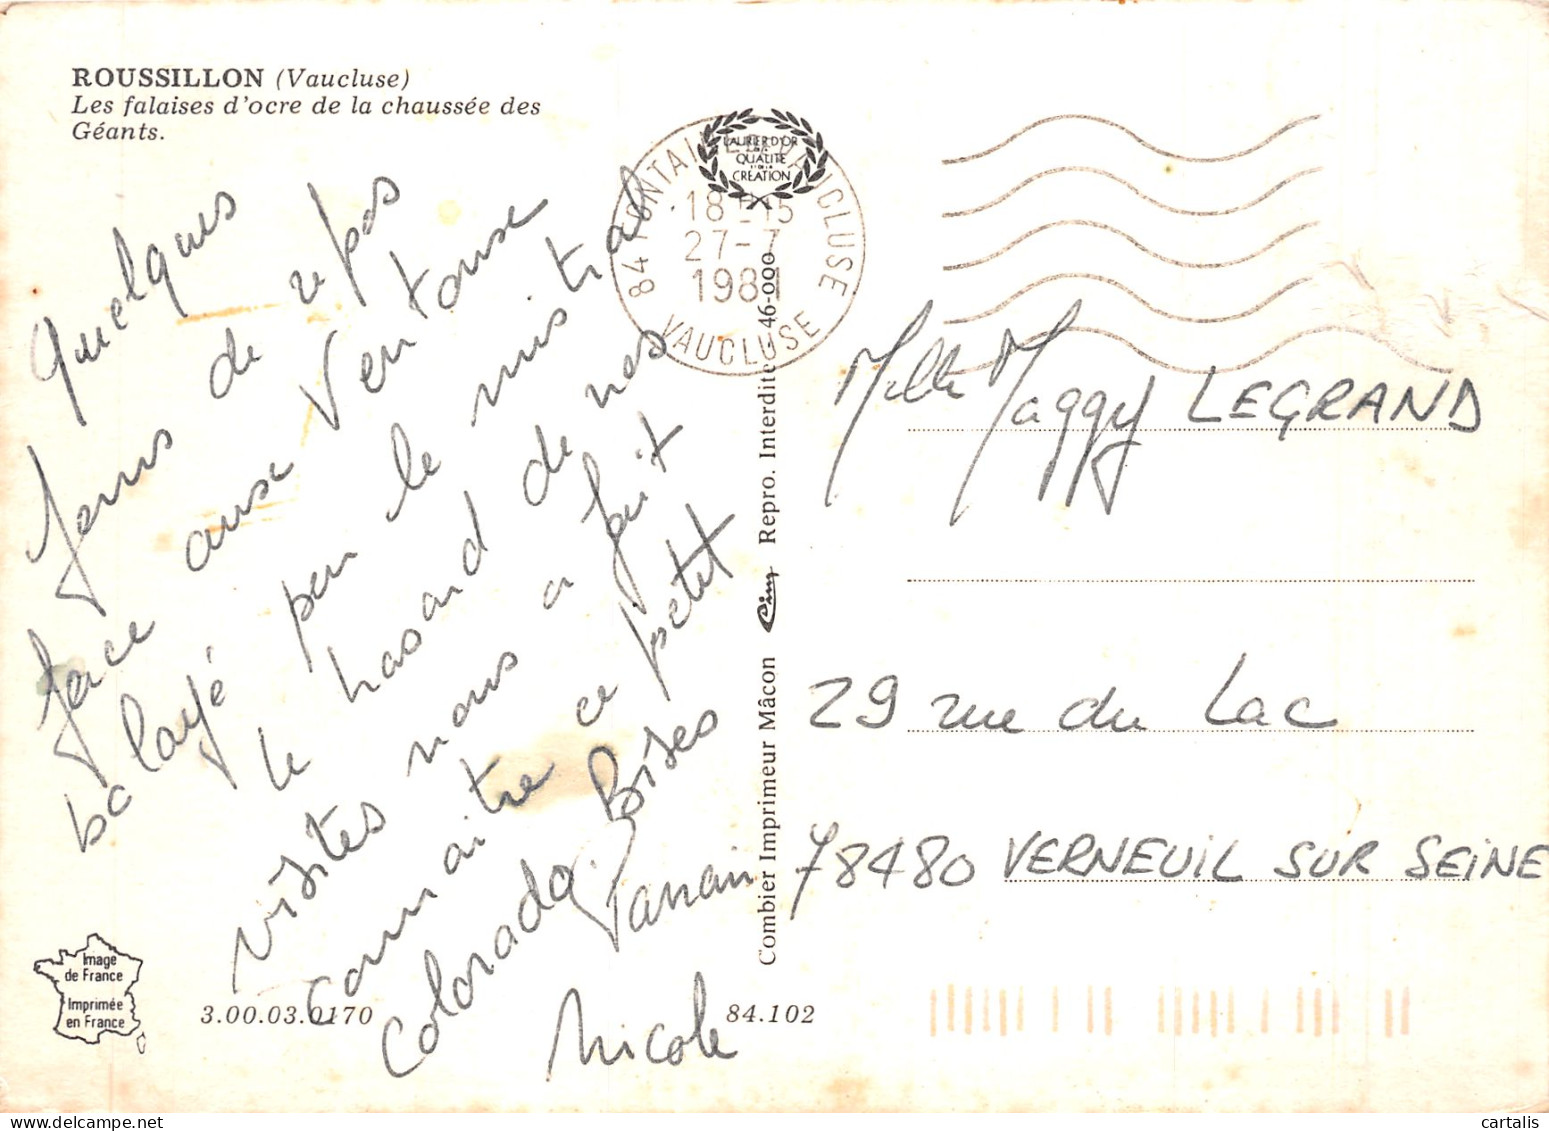 ROUSSILLON (Vaucluse)
Les falaises d'ocre de la chaussée des
Géants.
Quelques
jours de repos
face au Ventoux
balayé par le mistral
le hasard de nos
visites nous a fait
connaitre ce petit
Colorado. Bises
Parrain
Nicole
LAURIER D'OR
DE LA
QUALITE
ET DE LA
CREATION
84 FONTAINE DE VAUCLUSE
18H15
27-7
1981
VAUCLUSE
Combier Imprimeur Mâcon Cim Repro. Interdite 46-000
Melle Maggy LEGRAND
29 rue du Lac
78480 VERNEUIL SUR SEINE
Image
de France
Imprimée
en France
3.00.03.0170
84.102
cartalis